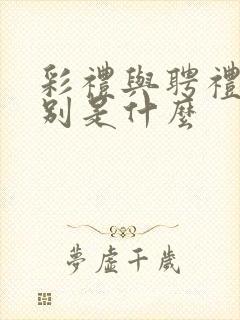 彩禮與聘禮
別是什麼
夢虛千歲